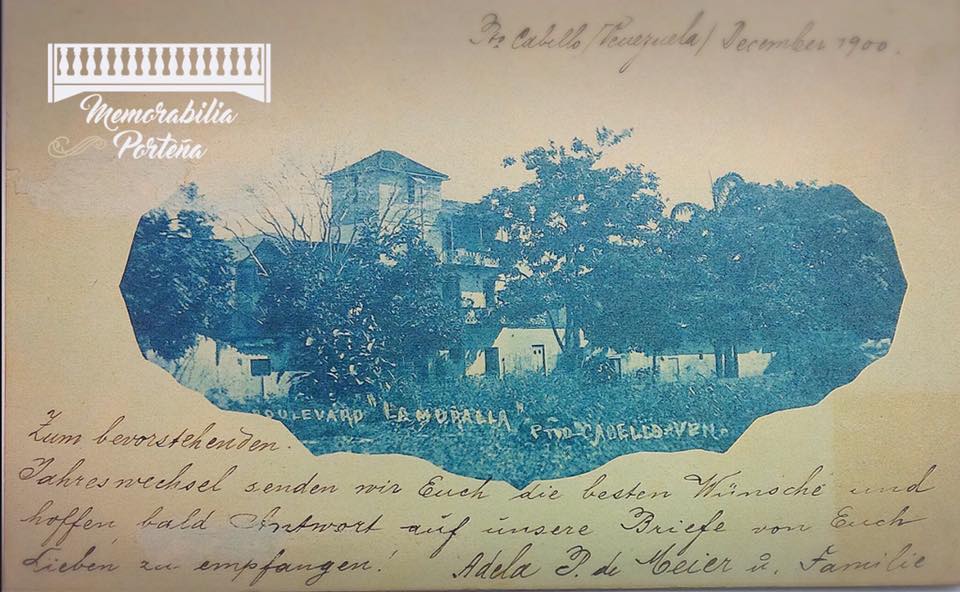 Pto Cabello (Venezuela) December 1900.
Memorabilia
Porteña
BOULEVARD "LA MURALLA"
PTO-CABELLO-VEN.
Zum bevorstehenden
Jahreswechsel senden wir Euch die besten Wünsche und
hoffen, bald Antwort auf unsere Briefe von Euch
Lieben zu empfangen! Adela P. de Meier u. Familie